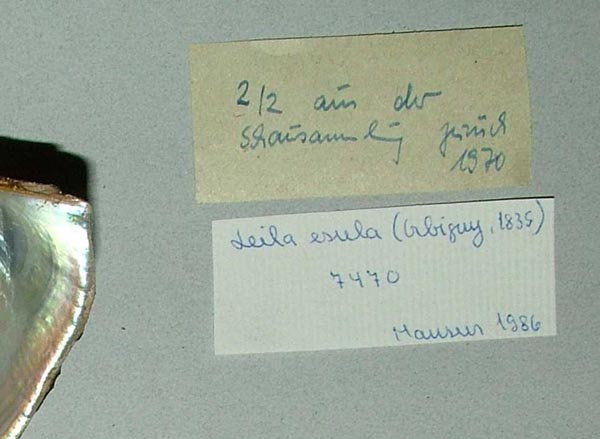 2/2 aus der
Schausammlung zurück
1970
Leila esula (Orbigny, 1835)
7470
1986